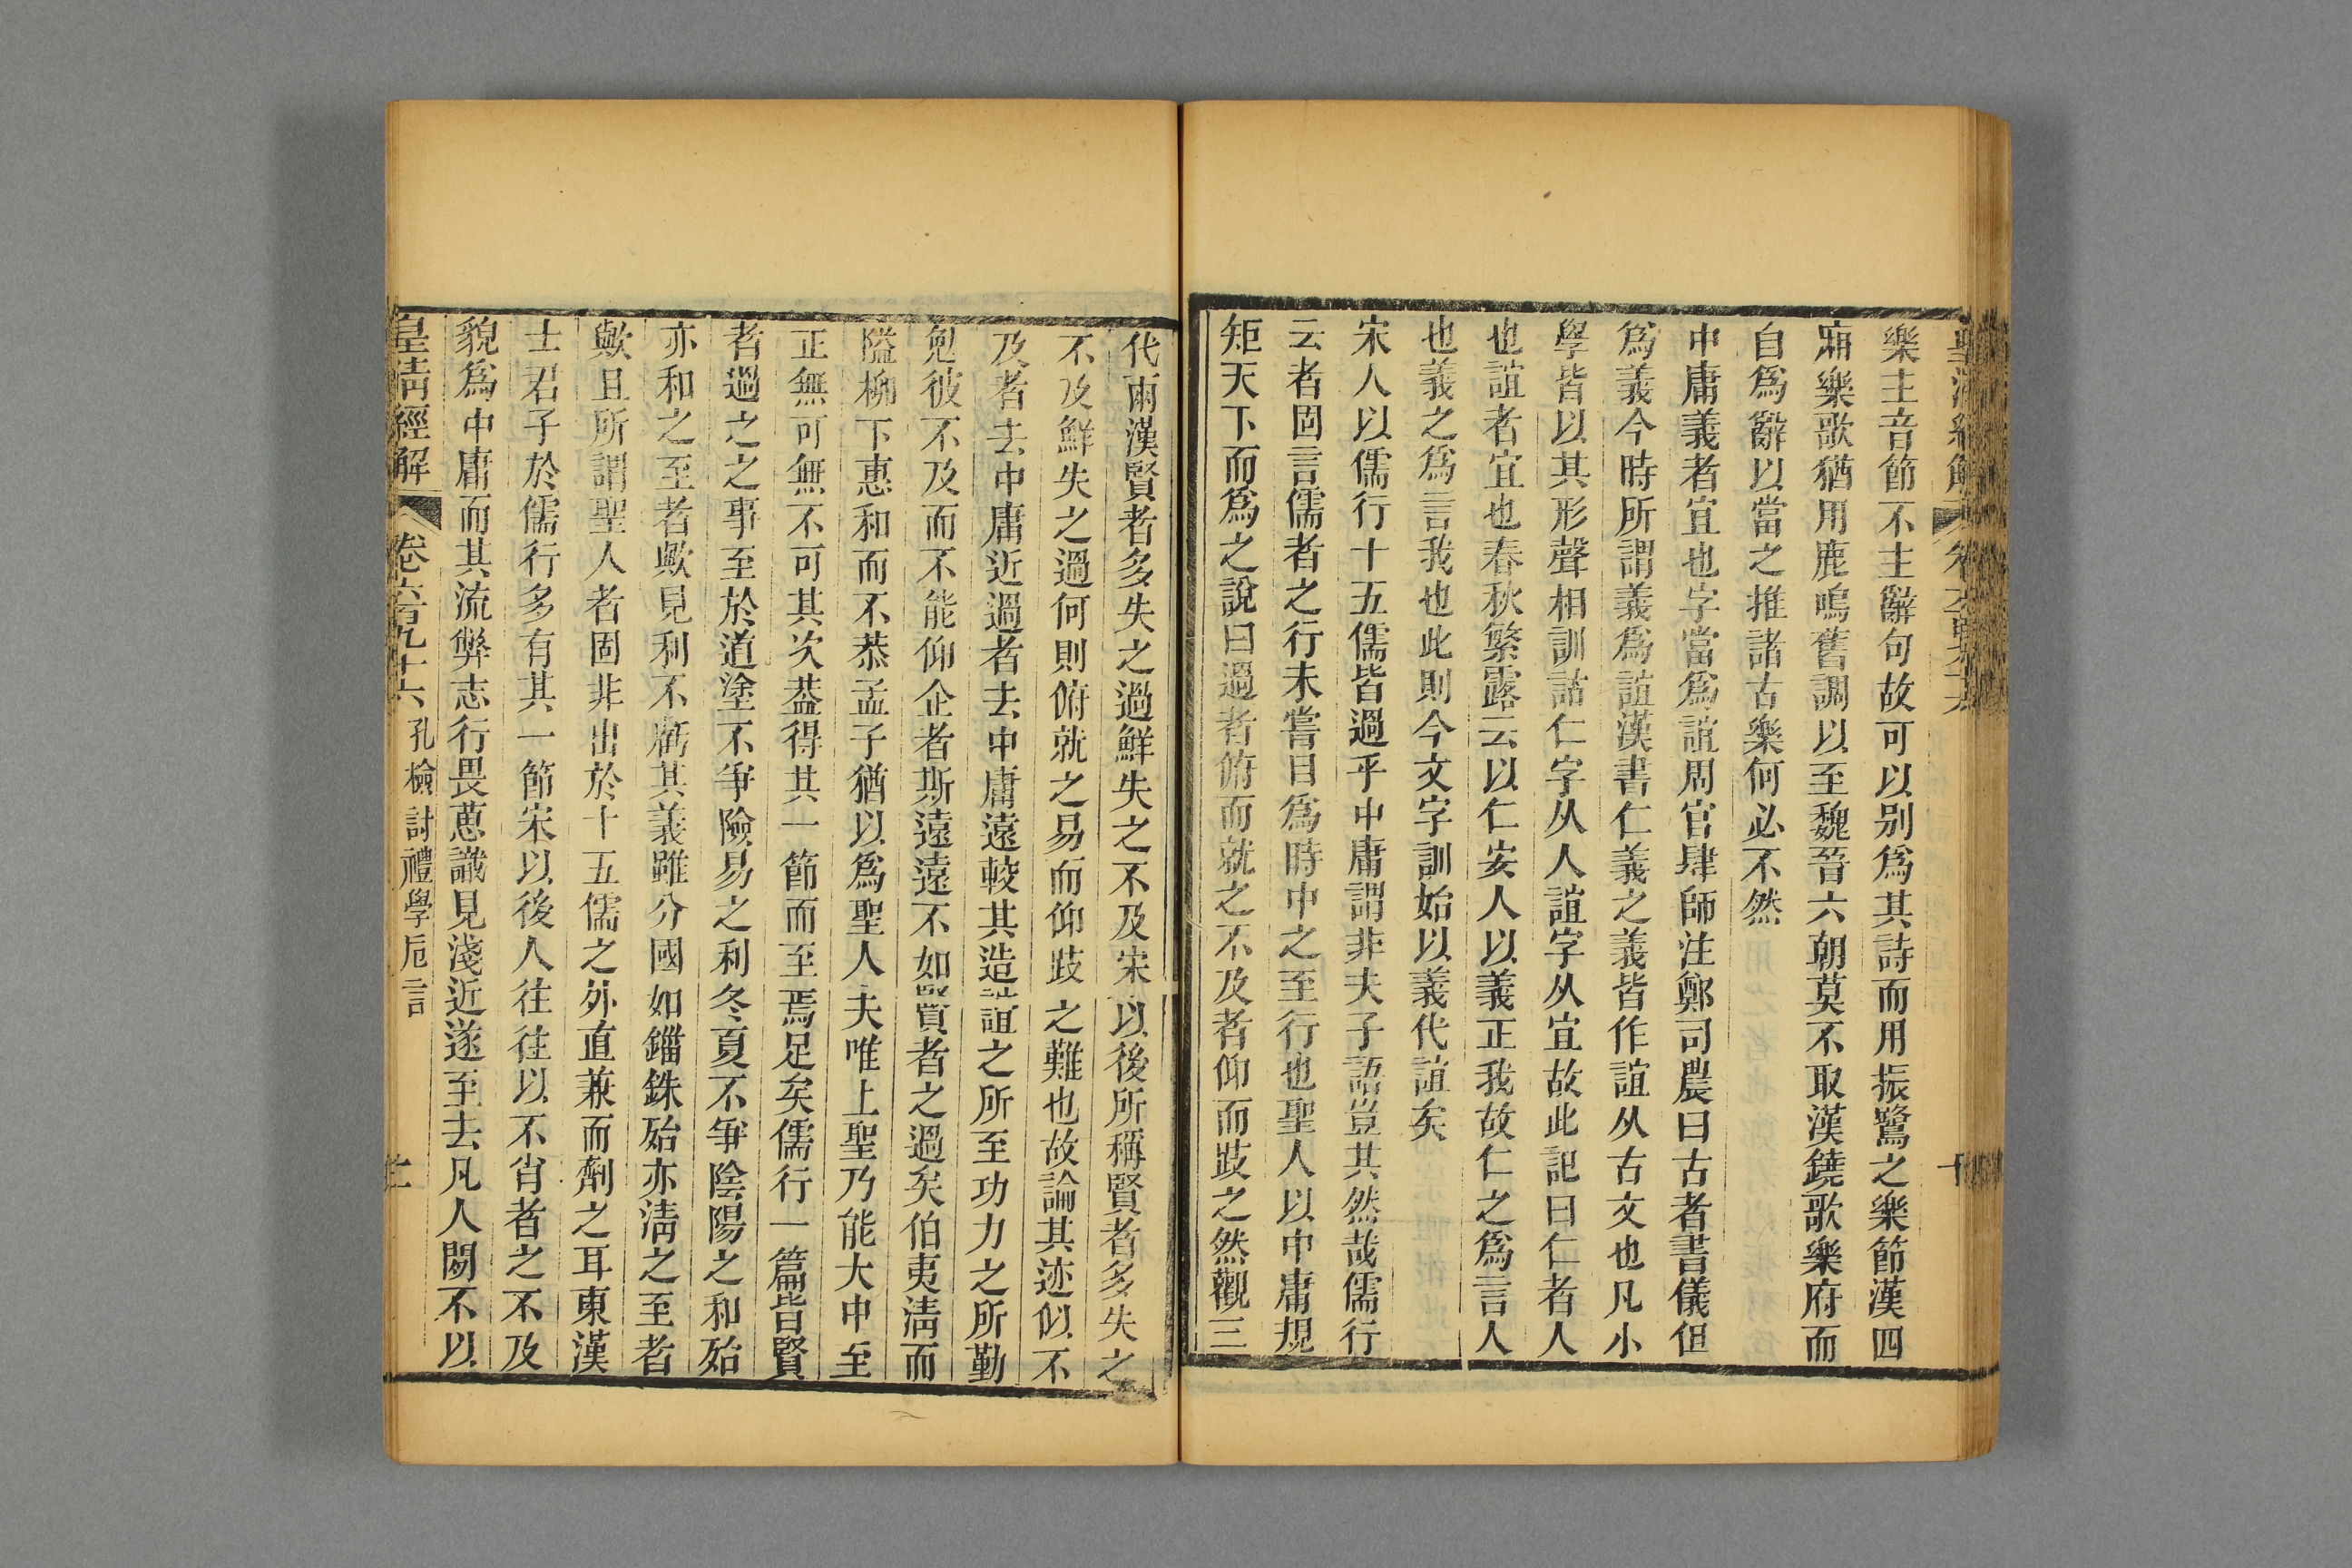 樂主音節不主辭句故可以别爲其詩而用振鷺之樂節漢四
廂樂歌猶用鹿鳴舊調以至魏晉六朝莫不取漢鐃歌樂府而
自爲辭以當之推諸古樂何必不然
中庸義者宜也字當爲誼周官肆師注鄭司農曰古者書儀但
爲義今時所謂義爲誼漢書仁義之義皆作誼从古文也凡小
學皆以其形聲相訓詁仁字从人誼字从宜故此記曰仁者人
也誼者宜也春秋繁露云以仁安人以義正我故仁之爲言人
也義之爲言我也此則今文字訓始以義代誼矣
宋人以儒行十五儒皆過乎中庸謂非夫子語豈其然哉儒行
云者固言儒者之行未嘗曰爲時中之至行也聖人以中庸規
矩天下而爲之說曰過者俯而就之不及者仰而跂之然觀三
代兩漢賢者多失之過鮮失之不及宋以後所稱賢者多失之
不及鮮失之過何則俯就之易而仰跂之難也故論其迹似不
及者去中庸近過者去中庸遠較其造誼之所至功力之所勤
勉彼不及而不能仰企者斯遠遠不如賢者之過矣伯夷淸而
隘柳下惠和而不恭孟子猶以爲聖人夫唯上聖乃能大中至
正無可無不可其次葢得其一節而至焉足矣儒行一篇皆賢
者過之之事至於道塗不爭險易之利冬夏不爭陰陽之和殆
亦和之至者歟見利不虧其義雖分國如錙銖殆亦淸之至者
歟且所謂聖人者固非出於十五儒之外直兼而劑之耳東漢
士君子於儒行多有其一節宋以後人往往以不肖者之不及
貌爲中庸而其流弊志行畏葸識見淺近遂至去凡人閒不以
皇淸經解 卷六百九十六 孔檢討禮學卮言